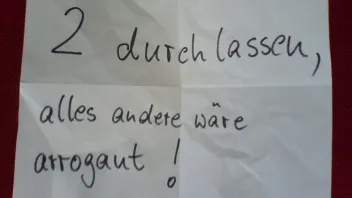 2 durchlassen,
alles andere wäre
arrogant !